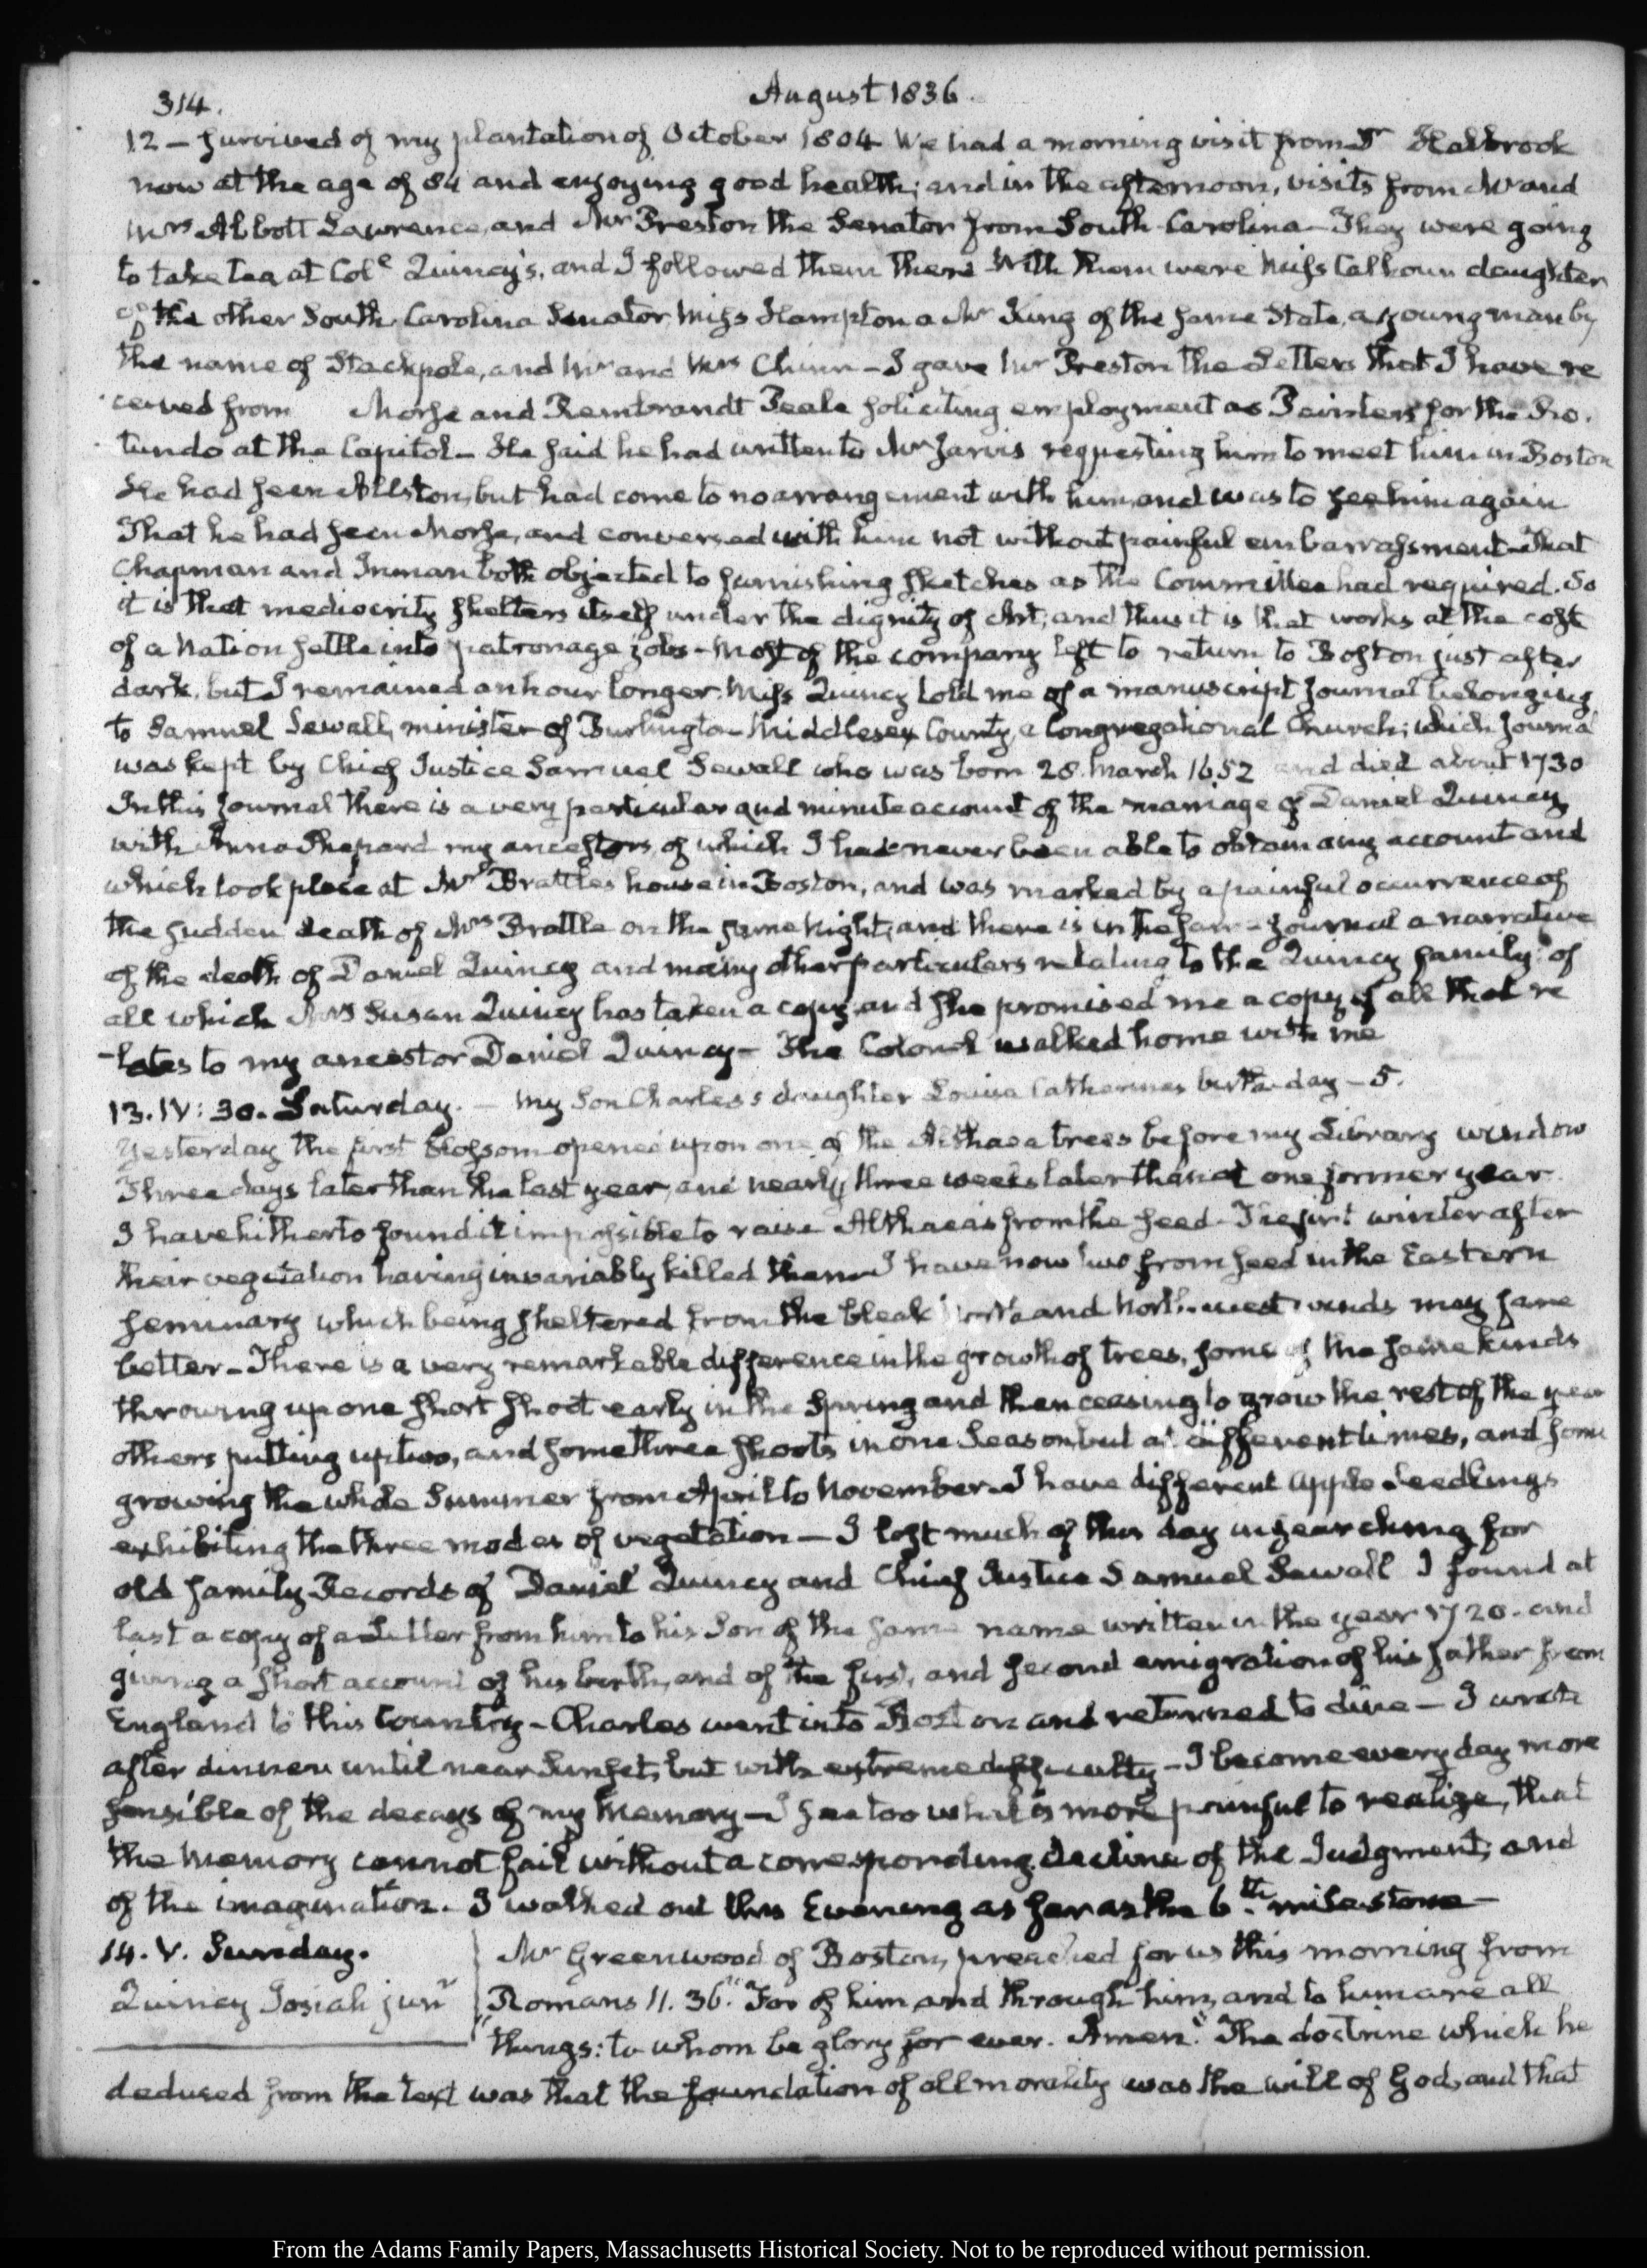 314.
August 1836.
12 — survived of my plantation of October 1804 We had a morning visit from Dr Holbrook
now at the age of 84 and enjoying good health; and in the afternoon, visits from Mr and
Mrs Abbott Lawrence, and Mr Preston the Senator from South Carolina — They were going
to take tea at Col. Quincy's, and I followed them there — With them were Miss Calhoun daughter
of the other South Carolina Senator, Miss Hampton a Mr King of the same State, a young man by
the name of Stackpole, and Mr and Mrs Chinn — I gave Mr Preston the Letters that I have re
ceived from Morse and Rembrandt Peale soliciting employment as Painters for the Ro.
tundo at the Capitol — He said he had written to Mr Jarvis requesting him to meet him in Boston
He had seen Allston, but had come to no arrangement with him, and was to see him again
That he had seen Morse, and conversed with him not without painful embarrassment — That
Chapman and Inman both objected to furnishing sketches as the Committee had required. So
it is that mediocrity shelters itself under the dignity of Art; and thus it is that works at the cost
of a Nation settle into patronage jobs — Most of the company left to return to Boston just after
dark, but I remained an hour longer. Miss Quincy told me of a manuscript journal belonging
to Samuel Sewall, minister of Burlington Middlesex County, a Congregational Church; which journal
was kept by Chief Justice Samuel Sewall who was born 28. March 1652 and died about 1730
In this journal there is a very particular and minute account of the marriage of Daniel Quincy
with Anna Shepard my ancestors, of which I had never been able to obtain any account and
which took place at Mr Brattle's house in Boston, and was marked by a painful occurrence of
the sudden death of Mrs Brattle on the same Night; and there is in the same journal a narrative
of the death of Daniel Quincy and many other particulars relating to the Quincy family: of
all which Miss Susan Quincy has taken a copy, and she promised me a copy of all that re
-lates to my ancestor Daniel Quincy — The Colonel walked home with me
13. IV: 30. Saturday. — My Son Charles's daughter Louisa Catherine's birth-day — 5.
Yesterday the first blossom opened upon one of the Althaea trees before my Library window
Three days later than the last year, and nearly three weeks later than at one former year.
I have hitherto found it impossible to raise Althaeas from the seed — The first winter after
their vegetation having invariably killed them — I have now two from seed in the Eastern
seminary which being sheltered from the bleak North and North-west winds may fare
better — There is a very remarkable difference in the growth of trees, some of the same kinds
throwing up one short shoot early in the Spring and then ceasing to grow the rest of the year
others putting up two, and some three shoots in one Season, but at different times, and some
growing the whole Summer from April to November. I have different apple Seedlings
exhibiting the three modes of vegetation — I lost much of this day in searching for
old family Records of Daniel Quincy and Chief Justice Samuel Sewall I found at
last a copy of a Letter from him to his Son of the same name written in the year 1720. and
giving a short account of his birth, and of the first, and second emigration of his father from
England to this Country — Charles went into Boston and returned to dine — I wrote
after dinner until near Sunset, but with extreme difficulty — I become every day more
sensible of the decays of my Memory — I see too what is more painful to realize, that
the Memory cannot fail without a corresponding decline of the Judgment, and
of the imagination. I walked out this Evening as far as the 6th. mile-stone —
14. V. Sunday.
Quincy Josiah junr
Mr Greenwood of Boston, preached for us this morning from
Romans 11. 36. "For of him, and through him, and to him are all
"things: to whom be glory for ever. Amen." The doctrine which he
deduced from the text was that the foundation of all morality was the will of God, and that
From the Adams Family Papers, Massachusetts Historical Society. Not to be reproduced without permission.